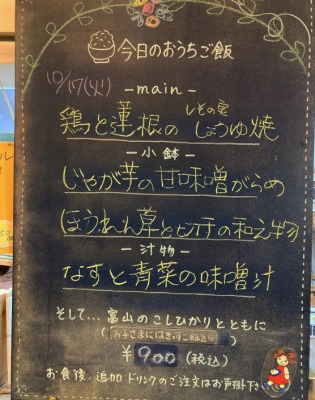 今日のおうちご飯
10/17(火)
-main-
しその実
鶏と蓮根の しょうゆ焼
-小鉢-
じゃが芋の甘味噌がらめ
ほうれん草とホタテの和え物
-汁物-
なすと青菜の味噌汁
そして...富山のこしひかりとともに
¥900(税込)
お食後、追加ドリンクのご注文はお声掛け下さい